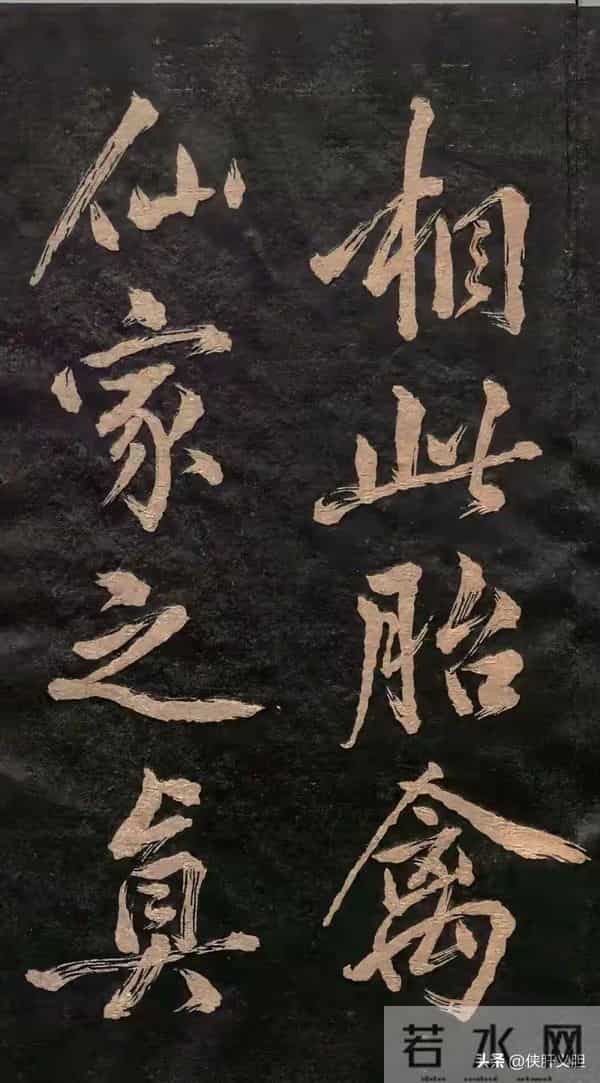 相此胎禽
仙家之真
若水网
头条@侠肝义胆